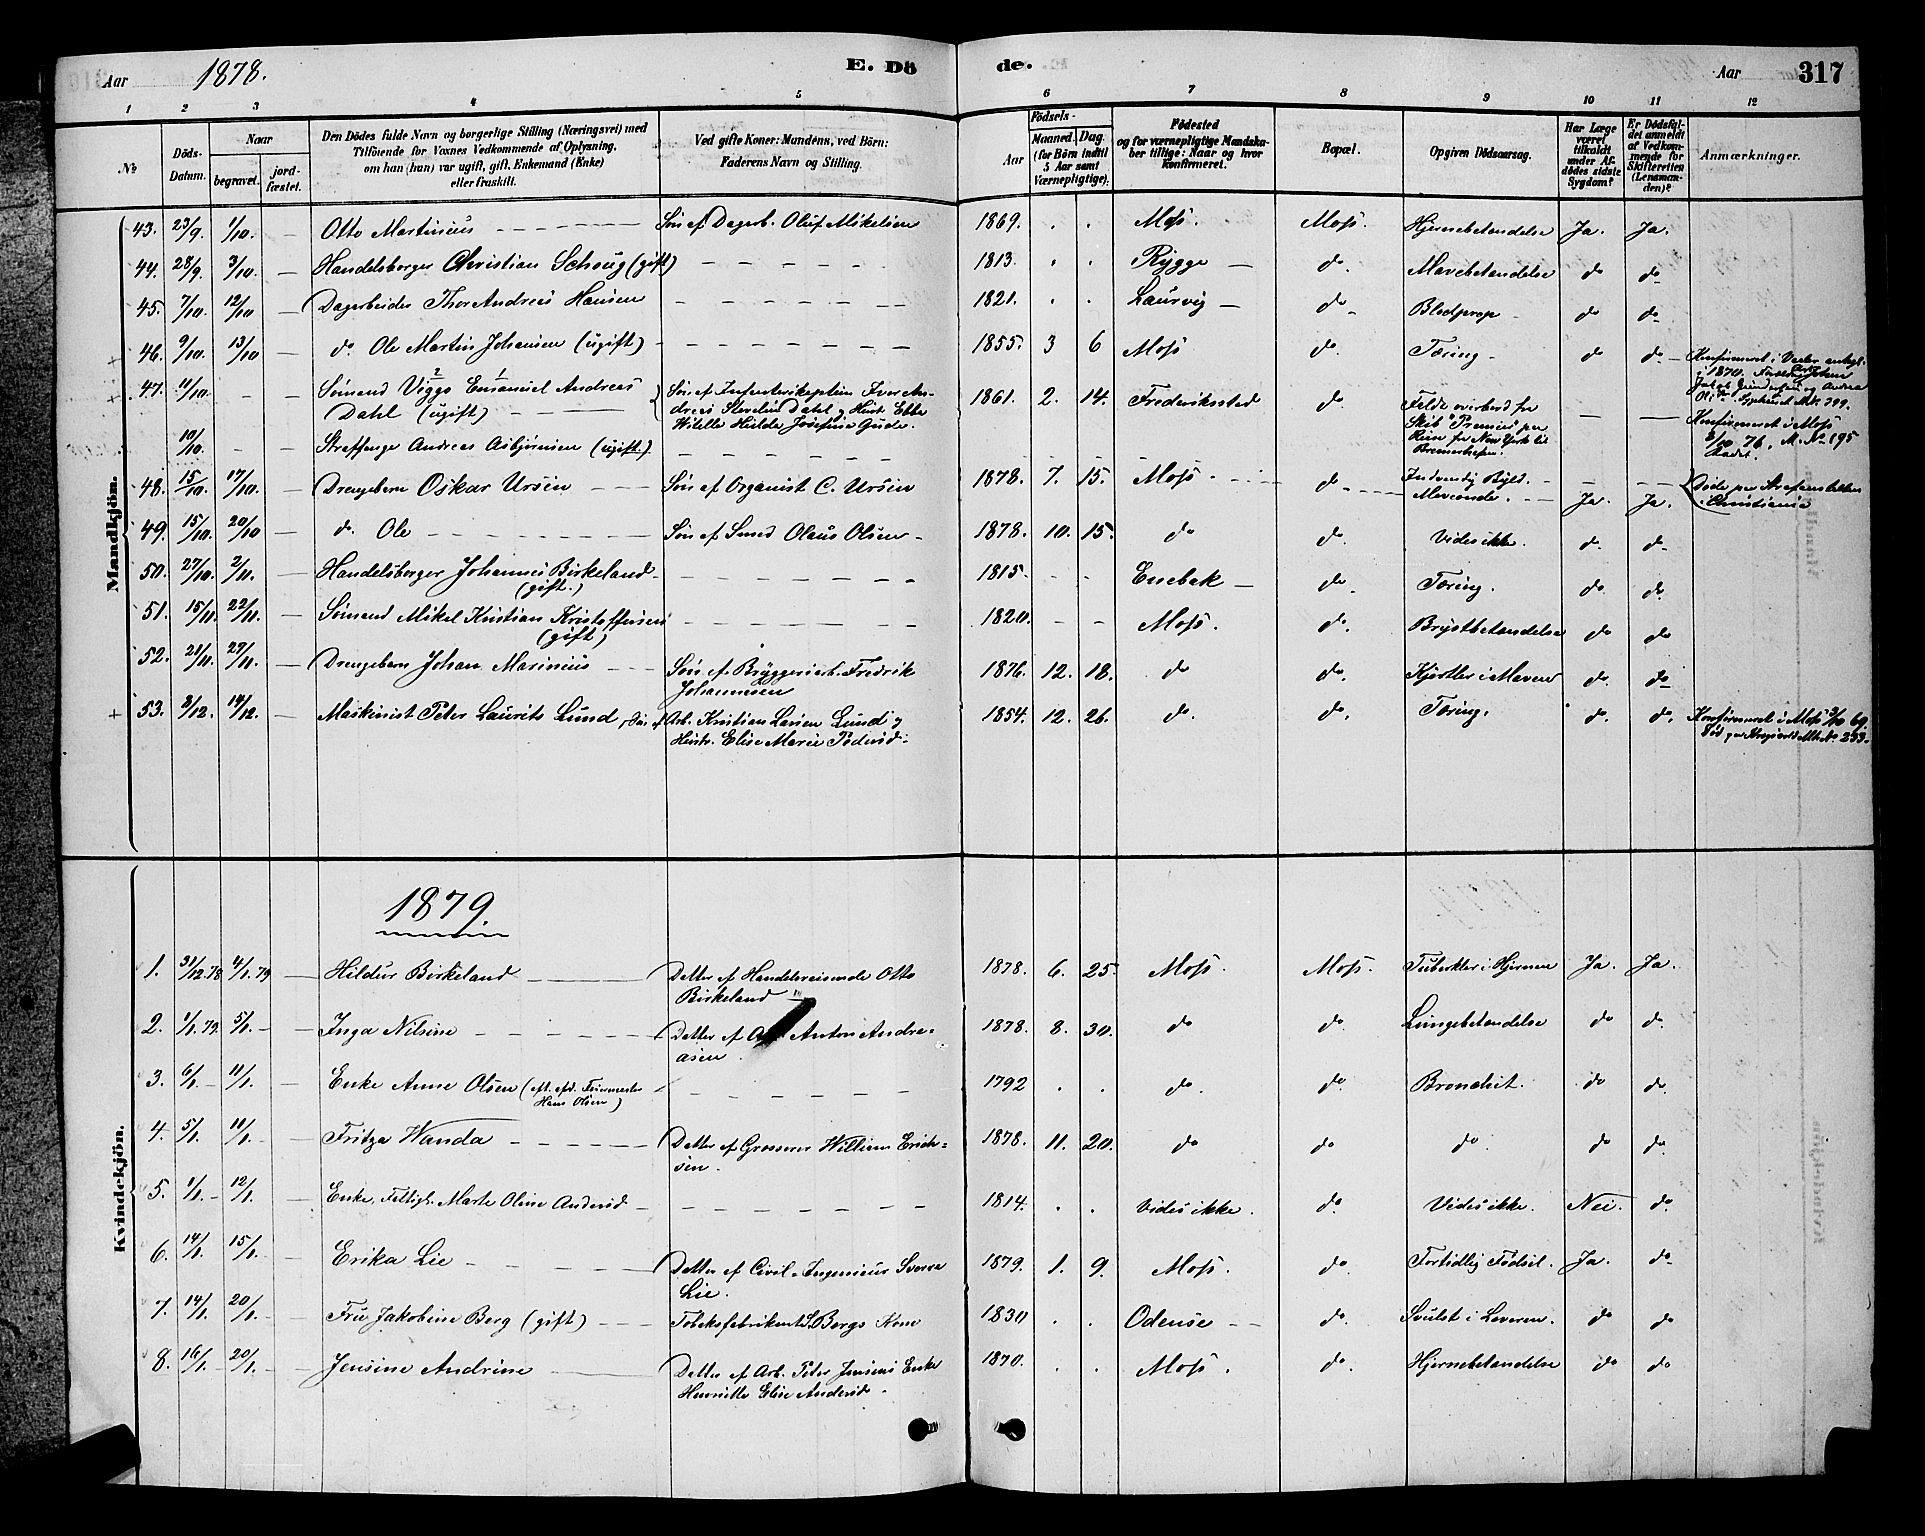 Aar 1878. E. Dö de. Aar 317
1 2 3 4 5 6 7 8 9 10 11 12
No Döds-Datum. Naar begravet. jord-fæstet. Den Dödes fulde Navn og borgerlige Stilling (Næringsvei) med Tilföiende for Voxnes Vedkommende af Oplysning, om han (hun) var ugift, gift, Enkemand (Enke) eller fraskilt. Ved gifte Koner: Mandens, ved Börn: Faderens Navn og Stilling. Födsels- Aar Maaned. Dag. (for Börn indtil 5 Aar samt Værnepligtige). Födested og for værnepligtige Mandskaber tillige: Naar og hvor konfirmeret. Bopæl. Opgiven Dödsaarsag. Har Læge været tilkaldt under Afdödes sidste Sygdom? Er Dödsfaldet anmeldt af Vedkommende for Skifteretten (Lensmanden)? Anmærkninger.
Mandkjön.
43. 23/9. 1/10. — Otto Martinius Søn af Dagarb. Oluf Mikelsen 1869. . . Moss. Moss. Hjernebetændelse Ja. Ja.
44. 28/9. 3/10. — Handelsborger Christian Schoug (gift) 1813. . . Rygge do. Mavebetændelse do do
45. 7/10. 12/10 — Dagarbeider Thor Andreas Hansen 1821. . . Laurvig do Blodprop do do
46. 9/10. 13/10 — do. Ole Martin Johansen (ugift) 1855. 3 6 Moss do. Tæring do do
47. 11/10. - - Sømand Viggo Emanuel Andreas
Dahl (ugift) Søn af Infanterikaptein Iver Andreas Dahl og Hust. Gude. 1861. 2. 14. Frederiksstad do. Faldt overbord fra
Skib paa
Reise fra New York til
Bremerhafen. — —
10/10. - - Straffange Andreas Asbjørnsen (ugift) Konfirmeret i Moss 76, M. No 195
48. 15/10. 17/10. — Drengebarn Oskar Ursin Søn af Organist C. Ursin 1878. 7. 15. Moss do Indvendig Byld. Ja. Ja. Døde paa Strafanstalten
i Christiania
49. 15/10. 20/10 — do. Ole Søn af Smed Olaus Olsen 1878. 10. 15. do do. Vides ikke. do. do
50. 27/10. 2/11. — Handelsborger Johannes Birkeland
(gift.) 1815. - - Enebak do. Tæring. do. do.
51. 15/11. 22/11. — Sømand Mikel Kristian Kristoffersen
(gift) 1820. - - Moss. do. Brystbetændelse do do
52. 21/11. 27/11. — Drengebarn Johan Marinius Søn af Bryggeriarb. Fredrik
Johannesen 1876. 12. 18. do do. Kjertler i Maven do. do
+ 53. 8/12. 14/12. — Maskinist Peter Laurits Lund, Søn af Arb. Kristian Larsen Lund og
Hustr. Elise Marie Pedersd. 1854. 12. 26. do. do. Tæring. do. do. Konfirmeret i Moss 69.
M. No 233.
Kvindekjön.
1879.
1. 31/12.78 4/1.79 — Hildur Birkeland Datter af Handelsreisende Otto
Birkeland 1878. 6. 25. Moss. Moss. Tuberkler i Hjernen Ja. Ja.
2. 1/1.79. 5/1. — Inga Nilsine Datter af Anton Andre-
asen 1878. 8. 30. do do. Lungebetændelse do do.
3. 6/1. 11/1. — Enke Anne Olsen (
Hans Olsen) 1792 . . do do. Bronchit. do do.
4. 5/1. 11/1. — Fritza Wanda Datter af Grosserer William Erich-
sen. 1878. 11. 20. do do do. do do.
5. 1/1. 12/1. — Enke, Fattigl. Marte Oline Andersd 1814. . . Vides ikke. do. Vides ikke. Nei. do.
6. 14/1. 15/1. — Erika Lie Datter af Civil-Ingeniør Sverre
Lie. 1879. 1. 9. Moss. do. Fortidlig Fødsel. Ja. do.
7. 14/1. 20/1. — Fru Jakobine Berg (gift) Tobaksfabrikant Bergs Kone 1830 . . Odense do. Svulst i Leveren. do do
8. 16/1. 20/1. — Jensine Andrine Datter af Arb. Peter Jensens Enke
Henriette Elise Andersd. 1870. . . Moss. do. Hjernebetændelse do do